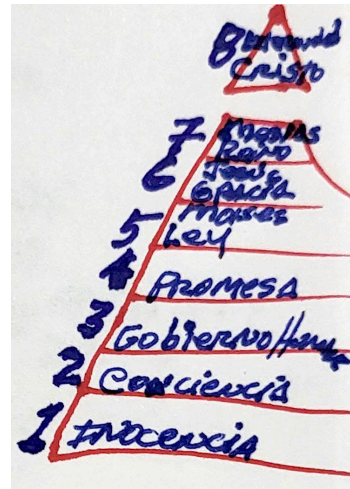 8 Eternidad
Cristo
7 Mesías
Reino
6 Jesús
Gracia
Moises
5 Ley
4 Promesa
3 Gobierno Hum
2 Conciencia
1 Inocencia